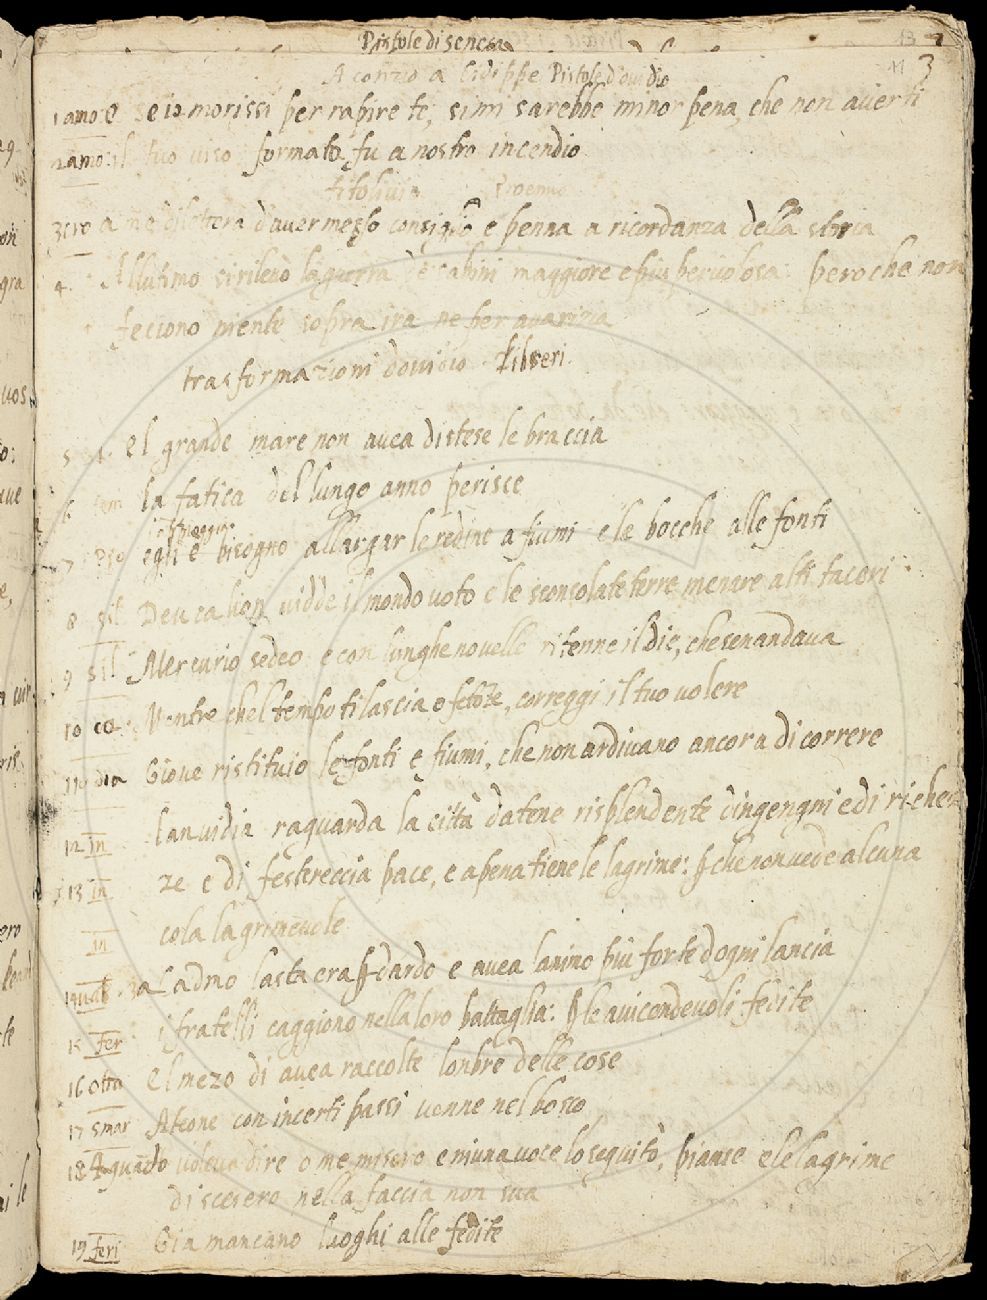 Pistole di seneca
13
11 3
Aconzio a Cidippe Pistole d'ovidio
1 amo e se io morissi per rapire te, si mi sarebbe minor pena, che non averti
2 amo il tuo viso formato, fu a nostro incendio
titolivio Proemio
3 cro a me dilettera d'aver messo consiglio e penna a ricordanza della storia
4. Allultimo si rilevò la guerra de sabini maggiore e piu pericolosa: peroche non
feciono niente sopra ira ne per avarizia
trasformazioni dovidio
5 el grande mare non avea distese le braccia
6 la fatica del lungo anno perisce
7 egli è bisogno allargar le redine a fiumi e le bocche alle fonti
8 sil Deucalion vidde il mondo voto e le sconsolate terre menare alti taceri
9 sil Mercurio sedeo e con lunghe novelle ritenne il die, che sen andava
10 co Mentre chel tempo ti lascia correggi il tuo volere
11 Giove ristituio le fonti e fiumi, che non ardivano ancora di correre
12 in lanvidia raguarda la città datene risplendente dingengni e di riche
13 in ze e di festereccia pace, e apena tiene le lagrime: che non vede alcuna
in cosa lagrimevole
14 Ladmo lasta era dardo e avea lanimo piu forte dogni lancia
15 fer i fratelli caggiono nella loro battaglia: le avicendevoli fedite
16 otta el mezo di avea raccolte lonbre delle cose
17 smar Ateone con incerti passi venne nel bosco
18 A quando voleva dire o me misero e niuna voce lo seguitò, pianse e le lagrime
discesero nella faccia non sua
19 feri Gia mancano luoghi alle fedite